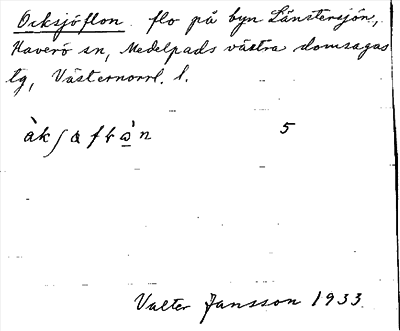 Ocksjöflon. flo på byn Länstersjön,
Haverö sn, Medelpads västra domsagas
tg, Västernorrl. l.
5
Valter Jansson 1933.